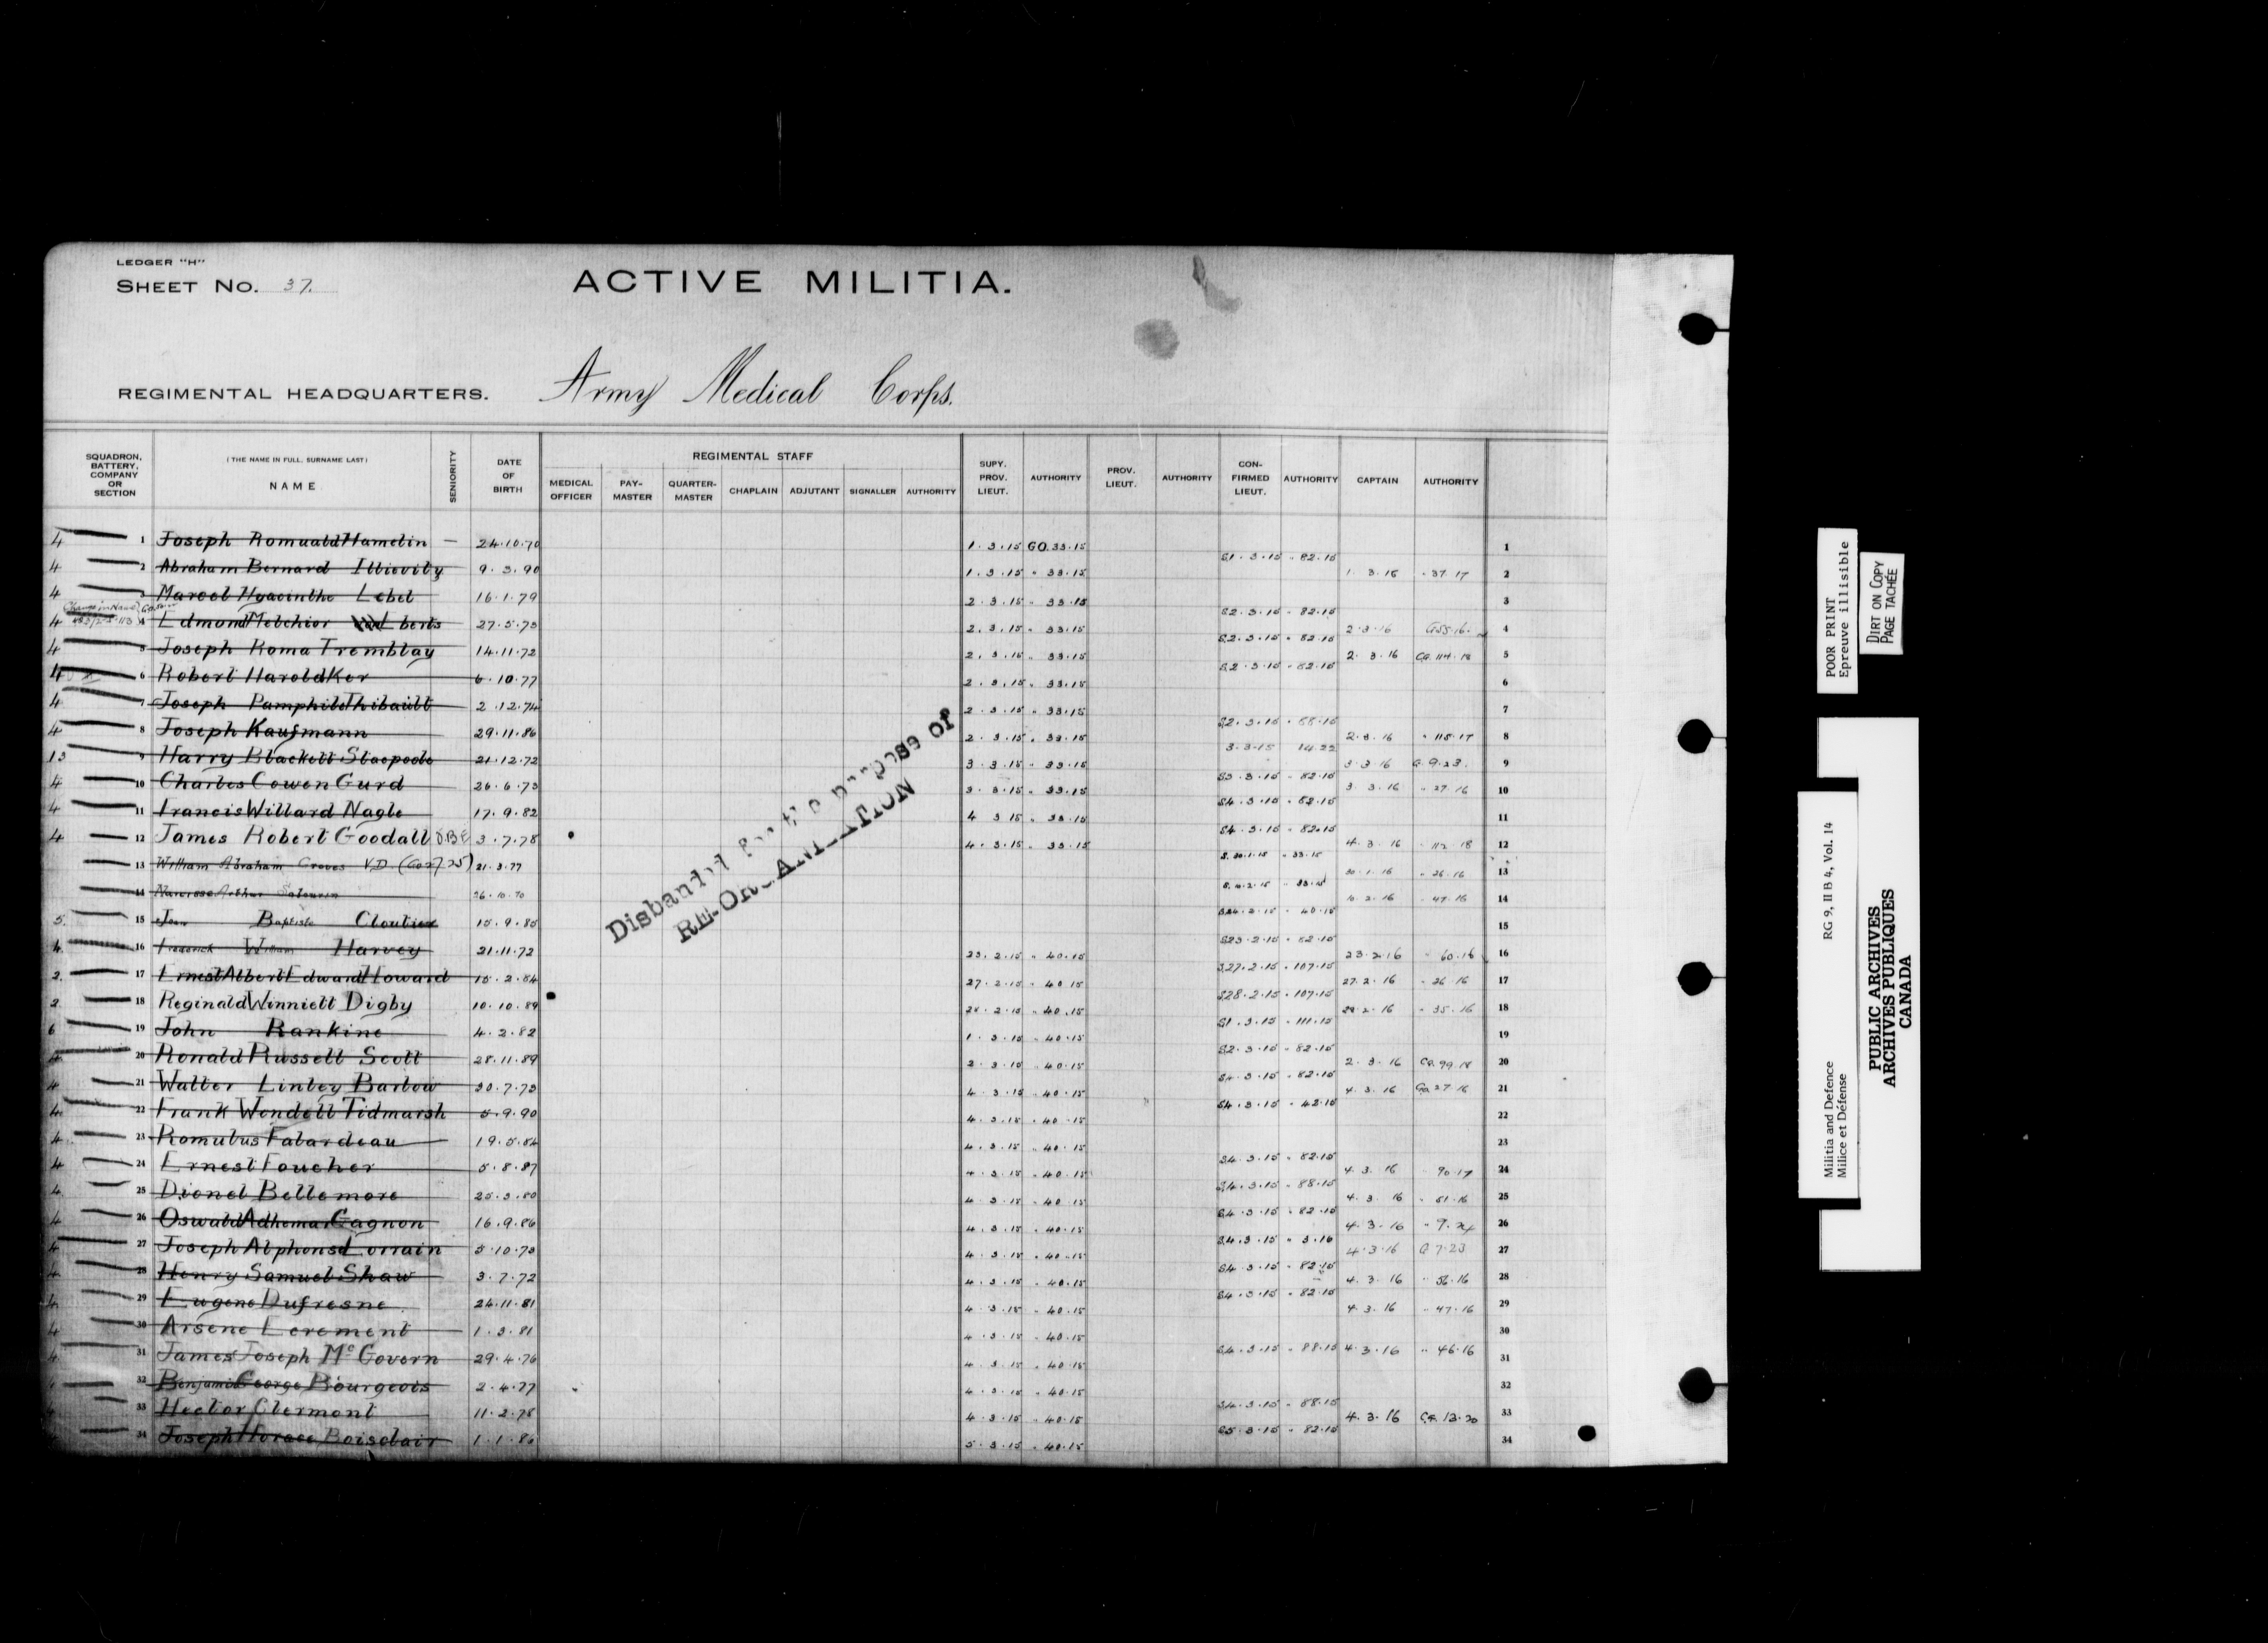 LEDGER "H"
SHEET No. 37.
ACTIVE MILITIA.
REGIMENTAL HEADQUARTERS. Army Medical Corps.
SQUADRON, BATTERY, COMPANY OR SECTION
(THE NAME IN FULL, SURNAME LAST) NAME
SENIORITY
DATE OF BIRTH
REGIMENTAL STAFF
MEDICAL OFFICER PAY-MASTER QUARTER-MASTER CHAPLAIN ADJUTANT SIGNALLER AUTHORITY
SUPY. PROV. LIEUT. AUTHORITY PROV. LIEUT. AUTHORITY CON-FIRMED LIEUT. AUTHORITY CAPTAIN AUTHORITY
4 1 Joseph Romuald Hamelin — 24.10.70 1.3.15 GO.33.15 1
4 2 Abraham Bernard Illievitz 9.3.90 1.3.15 " 33.15 S1.3.15 " 82.15 1.3.16 " 37.17 2
4 3 Marcel Hyacinthe Lebel 16.1.79 2.3.15 " 33.15 3
Change in Name
4 4 Edmond Melchior 27.5.73 2.3.15 " 33.15 S2.3.15 " 82.15 2.3.16 4
4 5 Joseph Roma Tremblay 14.11.72 2.3.15 " 33.15 S2.3.15 " 82.15 2.3.16 GO.114.18 5
4 6 Robert Harold Ker 6.10.77 2.3.15 " 33.15 S2.3.15 " 82.15 6
4 7 Joseph Pamphile Thibault 2.12.74 2.3.15 " 33.15 7
4 8 Joseph Kaufmann 29.11.86 2.3.15 " 33.15 S2.3.15 " 88.15 2.3.16 " 115.17 8
13 9 Harry Blackett Stacpoole 21.12.72 3.3.15 " 33.15 3.3.15 14.22 3.3.16 G.9.23. 9
4 10 Charles Cowen Gurd 26.6.73 3.3.15 " 33.15 S3.3.15 " 82.15 3.3.16 " 27.16 10
4 11 Francis Willard Nagle 17.9.82 4 3 15 " 33.15 S4.3.15 " 82.15 11
4 12 James Robert Goodall O.B.E 3.7.78 4.3.15 " 33.15 S4.3.15 " 82.15 4.3.16 " 112.18 12
13 William Abraham Groves V.D. (GO27/25) 21.3.77 S.30.1.15 " 33.15 30.1.16 " 26.16 13
14 Narcisse Arthur 26.10.70 S.10.2.15 " 33.15 10.2.16 " 47.16 14
5. 15 Jean Baptiste Cloutier 15.9.85 S24.2.15 " 40.15 15
4. 16 Frederick William Harvey 21.11.72 23.2.15 " 40.15 S23.2.15 " 82.15 23.2.16 " 60.16 16
2. 17 Ernest Albert Edward Howard 15.2.84 27.2.15 " 40 15 S27.2.15 " 107.15 27.2.16 " 26 16 17
2. 18 Reginald Winniett Digby 10.10.89 28.2.15 " 40.15 S28.2.15 " 107.15 28.2.16 " 35.16 18
6 19 John Rankine 4.2.82 1.3.15 " 40.15 S1.3.15 " 111.15 19
20 Ronald Russell Scott 28.11.89 2.3.15 " 40.15 S2.3.15 " 82.15 2.3.16 GO.99.18 20
4 21 Walter Linley Barlow 30.7.73 4.3.15 " 40.15 S4.3.15 " 82.15 4.3.16 GO.27.16 21
4. 22 Frank Wendell Tidmarsh 5.9.90 4.3.15 " 40.15 S4.3.15 " 42.15 22
4. 23 Romulus Falardeau 19.5.84 4.3.15 " 40.15 23
4 24 Ernest Foucher 5.8.87 4.3.15 " 40.15 S4.3.15 " 82.15 4.3.16 " 90.17 24
4 25 Dionel Bellemare 25.3.80 4.3.15 " 40.15 S4.3.15 " 88.15 4.3.16 " 51.16 25
4 26 Oswald Adhemar Gagnon 16.9.86 4.3.15 " 40.15 S4.3.15 " 82.15 4.3.16 " 9.24 26
4 27 Joseph Alphonse Lorrain 5.10.73 4.3.15 " 40.15 S4.3.15 " 3.16 4.3.16 G 7.23 27
4 28 Henry Samuel Shaw 3.7.72 4.3.15 " 40.15 S4.3.15 " 82.15 4.3.16 " 56.16 28
4 29 Eugene Dufresne 24.11.81 4.3.15 " 40.15 S4.3.15 " 82.15 4.3.16 " 47.16 29
4 30 Arsene Lerement 1.3.81 4.3.15 " 40.15 30
4 31 James Joseph McGovern 29.4.76 4.3.15 " 40.15 S4.3.15 " 88.15 4.3.16 " 46.16 31
32 Benjamin George Bourgeois 2.4.77 4.3.15 " 40.15 32
33 Hector Clermont 11.2.78 4.3.15 " 40.15 S4.3.15 " 88.15 4.3.16 G.13.20 33
34 Joseph Horace Boisclair 1.1.86 5.3.15 " 40.15 S5.3.15 " 82.15 34
Disbanded for the purpose of
RE-ORGANIZATION
POOR PRINT
Epreuve illisible
DIRT ON COPY
PAGE TACHÉE
Militia and Defence
Milice et Défense
RG 9, II B 4, Vol. 14
PUBLIC ARCHIVES
ARCHIVES PUBLIQUES
CANADA